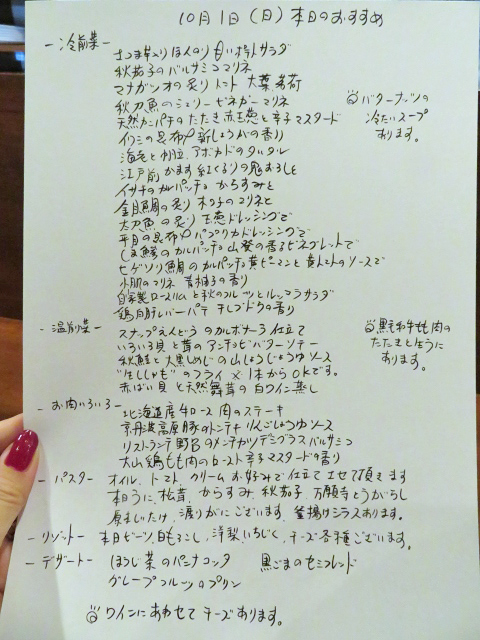 10月1日(日)本日のおすすめ
－冷前菜－
さつま芋入りほんのり甘いポテトサラダ
秋茄子のバルサミコマリネ
マナガツオの炙り トマト 大葉 茗荷
秋刀魚のシェリービネガーマリネ
天然カンパチのたたき 赤玉葱と辛子マスタード
イワシの昆布〆 新しょうがの香り
海老と帆立、アボカドのタルタル
江戸前かます 紅くるりの鬼おろしと
イサキのカルパッチョ からすみと
金目鯛の炙り 木の子のマリネと
太刀魚の炙り 玉葱ドレッシングで
平目の昆布〆 パプリカドレッシングで
しま鯵のカルパッチョ 山葵の香るビネグレットで
ヒゲソリ鯛のカルパッチョ 黄ピーマンと黄トマトのソースで
小肌のマリネ 青柚子の香り
自家製ロースハムと秋のフルーツとルッコラサラダ
鶏白肝レバーパテ 干しブドウの香り
バターナッツの
冷たいスープ
あります。
－温前菜－
スナップえんどうのカルボナーラ仕立て
いろいろ貝と茸のアンチョビバターソテー
秋鮭と大黒しめじの山しょうじょうゆソース
"生ししゃも"のフライ ×1本からOKです。
赤ばい貝と天然舞茸の白ワイン蒸し
黒毛和牛もも肉の
たたきと生うに
あります。
－お肉いろいろ－
北海道産牛ロース肉のステーキ
京丹波高原豚のトンテキ りんごしょうゆソース
リストランテ野呂のメンチカツ デミグラスバルサミコ
大山鶏もも肉のロースト 辛子マスタードの香り
－パスタ－ オイル、トマト、クリームお好みで仕立てさせて頂きます
本日うに、松茸、からすみ、秋茄子、万願寺とうがらし
原木しいたけ、渡りがにございます。釜揚げシラスあります。
－リゾット－ 本日ビーツ、白もろこし、洋梨、いちじく、チーズ各種ございます。
－デザート－ ほうじ茶のパンナコッタ 黒ごまのセミフレッド
グレープフルーツのプリン
ワインにあわせてチーズあります。